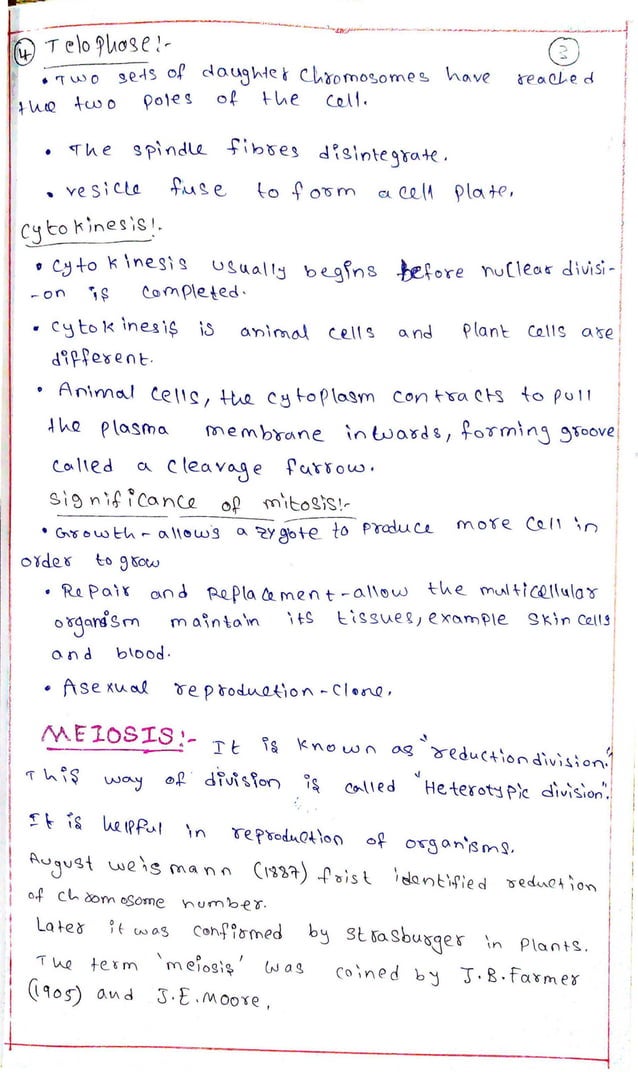 ④ Telophose:- ③
• Two sets of daughter chromosomes have reached
the two poles of the cell.
• The spindle fibres disintegrate.
• vesicle fuse to form a cell plate.
Cytokinesis:-
• Cytokinesis usually begins before nuclear divisi-
-on is completed.
• Cytokinesis is animal cells and plant cells are
different.
• Animal cells, the cytoplasm contracts to pull
the plasma membrane inwards, forming groove
called a cleavage furrow.
Significance of mitosis:-
• Growth - allows a zygote to produce more cell in
order to grow
• Repair and Replacement - allow the multicellular
organism maintain its tissues, example skin cells
and blood.
• Asexual reproduction - clone.
MEIOSIS:- It is known as "reduction division."
This way of division is called "Heterotypic division".
It is helpful in reproduction of organisms.
August weismann (1887) frist identified reduction
of chromosome number.
Later it was confirmed by strasburger in plants.
The term 'meiosis' was coined by J.B. Farmer
(1905) and J.E. Moore.